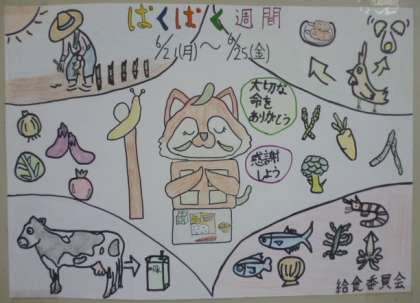 ぱくぱく週間
6/21(月)〜6/25(金)
大切な
命を
ありがとう
感謝
しよう
給食委員会